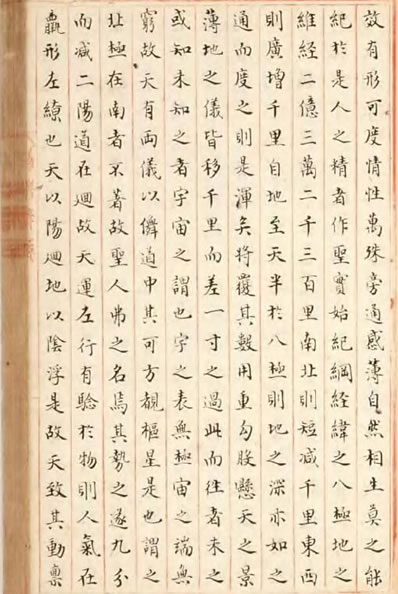 效有形可度情性萬殊旁通感薄自然相生莫之能
紀於是人之精者作聖實始紀綱經緯之八極地之
維經二億三萬二千三百里南北則短減千里東西
則廣增千里自地至天半於八極則地之深亦如之
通而度之則是渾矣將覆其數用重勾股懸天之景
薄地之儀皆移千里而差一寸之過此而往者未之
或知未知之者宇宙之謂也宇之表無極宙之端無
窮故天有兩儀以儛道中其可方覩樞星是也謂之
北極在南者不著故聖人弗之名焉其勢之遂九分
而減二陽道在迴故天運左行有驗於物則人氣在
羸形左繚也天以陽迴地以陰浮是故天致其動稟